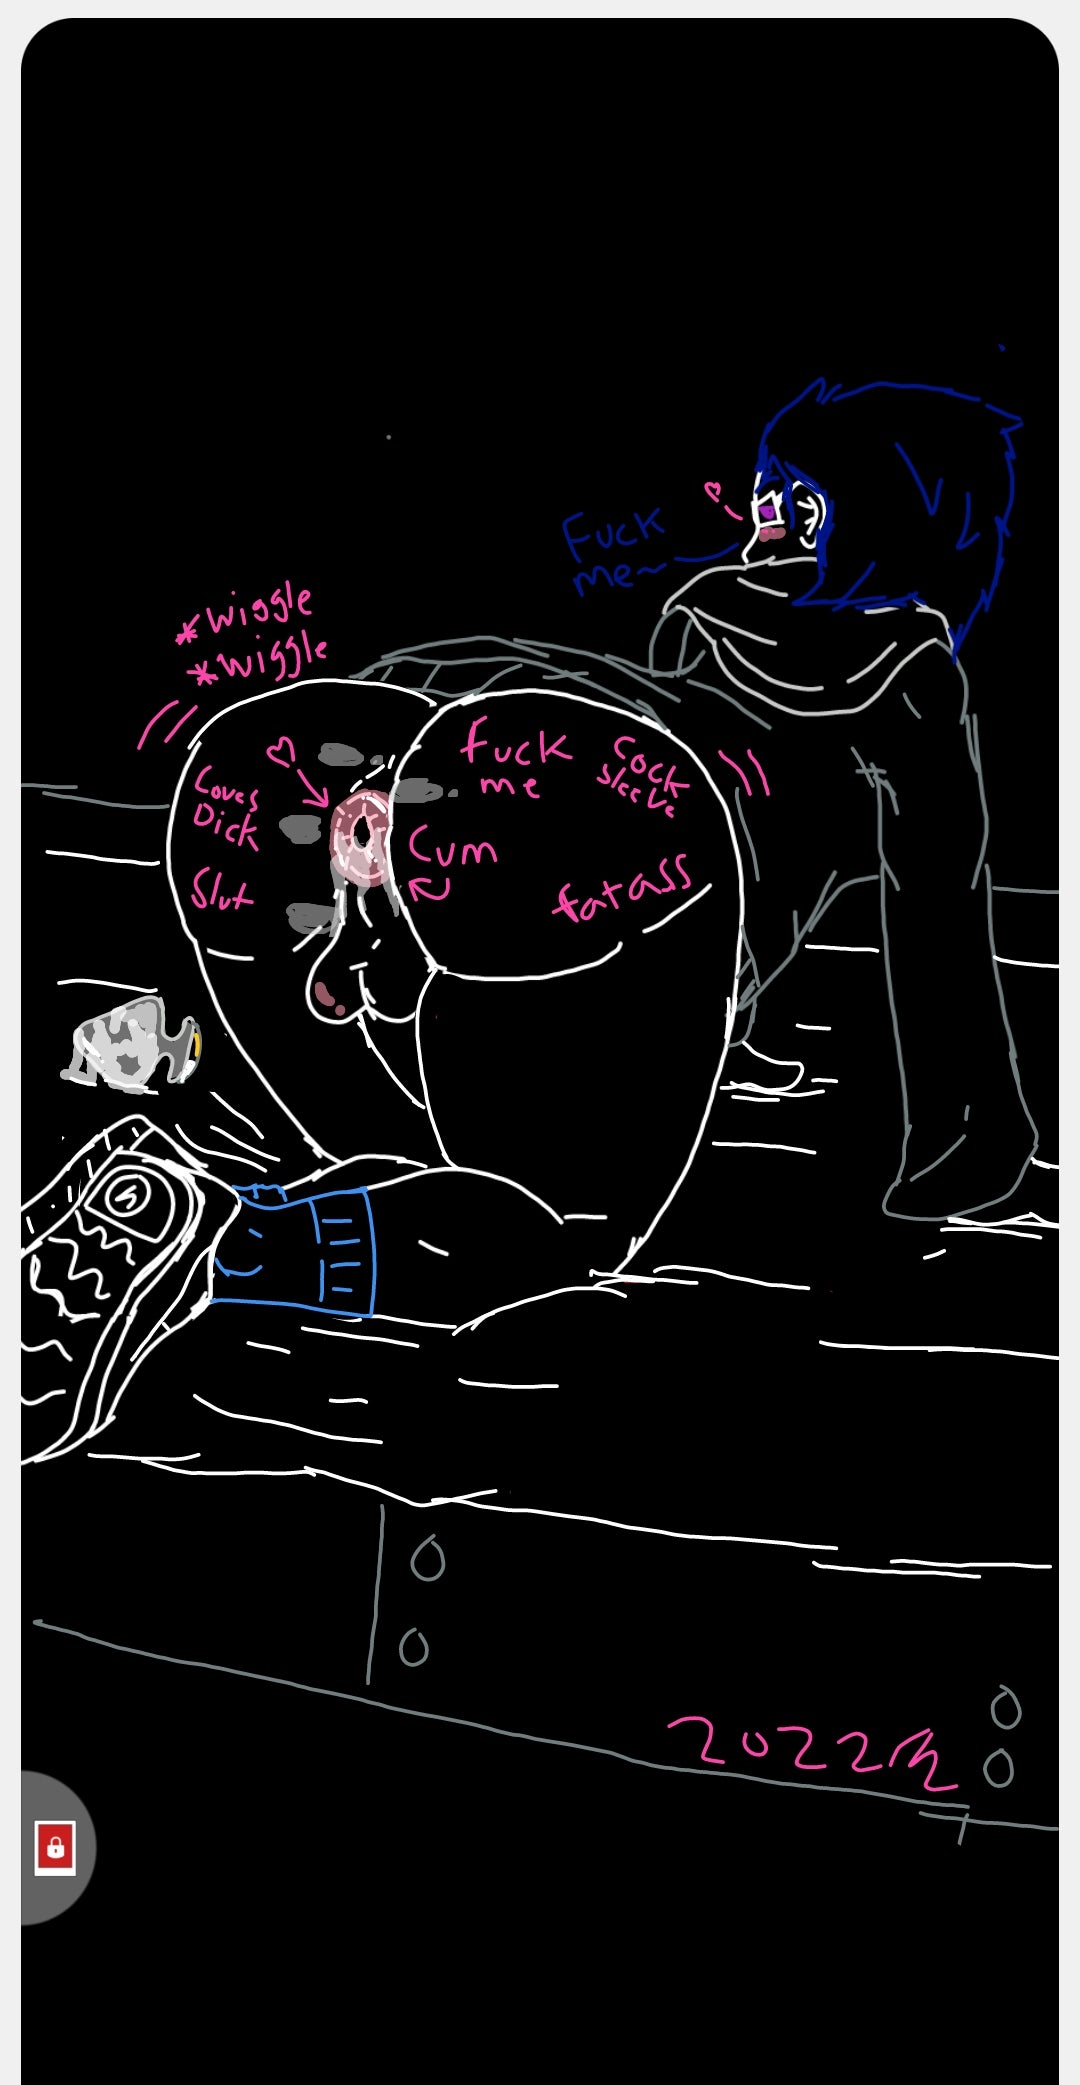 Fuck
me~
*wiggle
*wiggle
Loves
Dick
Slut
fuck
me
Cock
sleeve
Cum
fat ass
2022